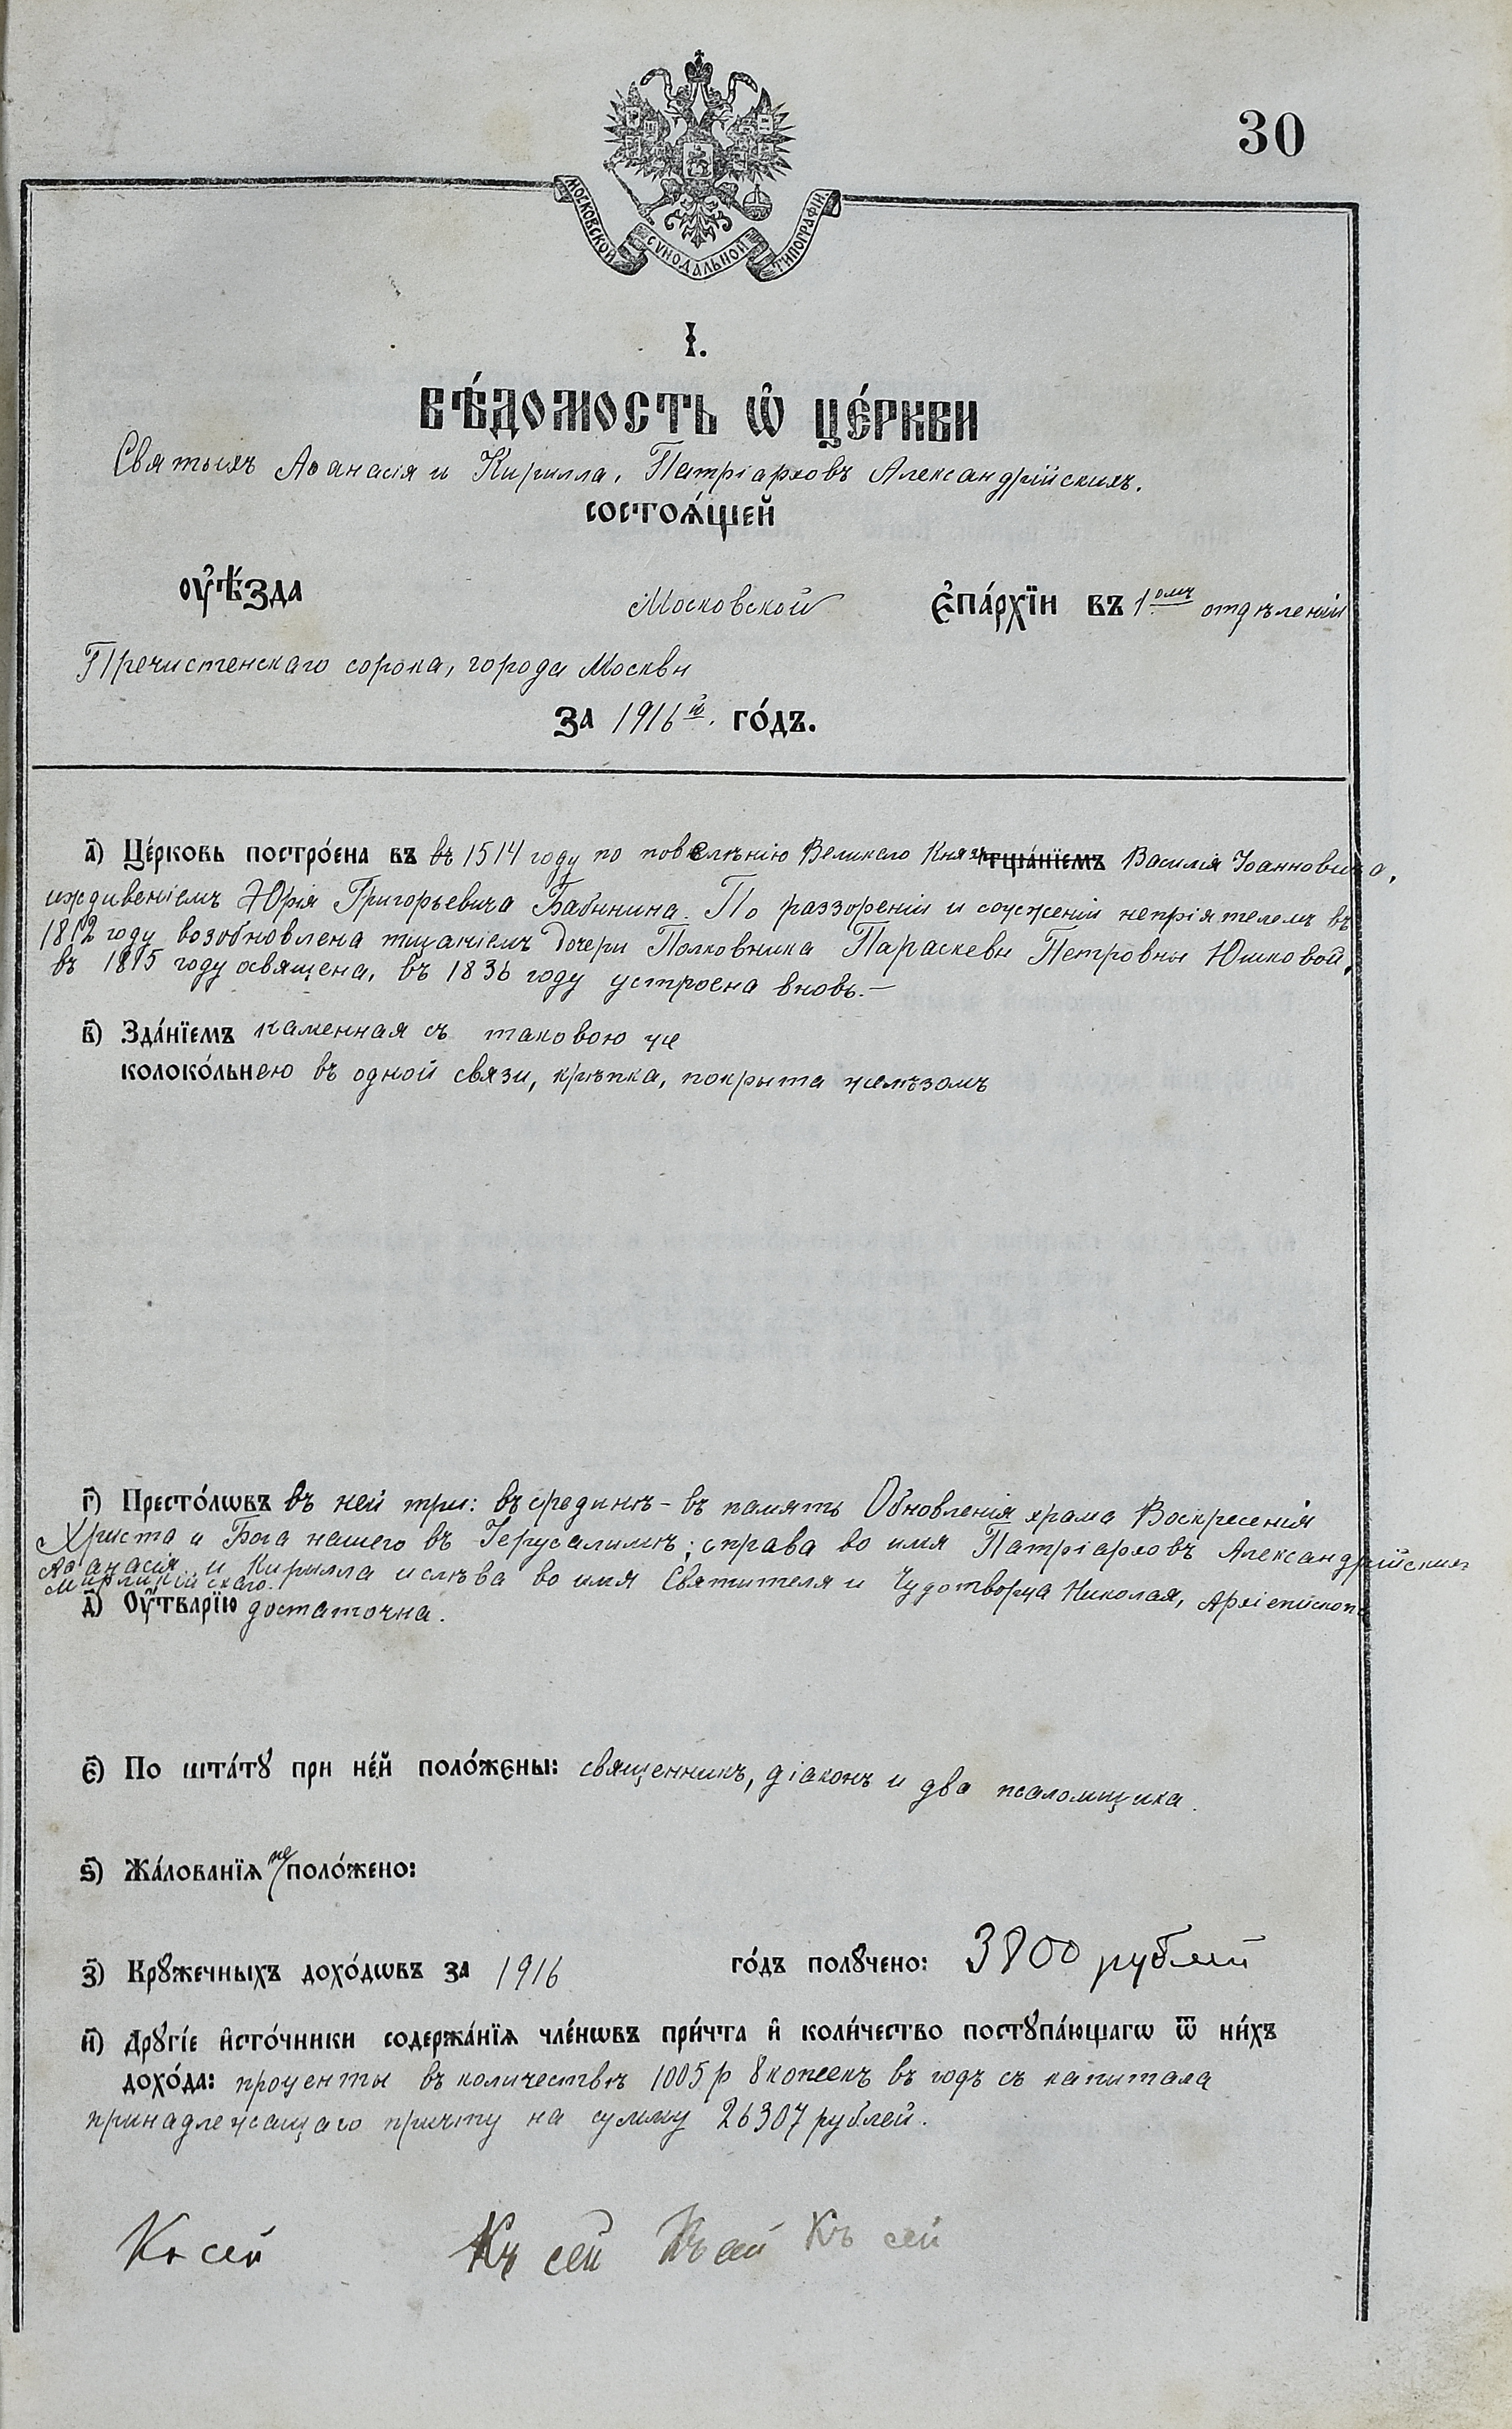 30
МОСКОВСКОЙ СѴНОДАЛЬНОЙ ТИПОГРАФІИ
І.
ВѢ́ДОМОСТЬ Ѡ҆ ЦЕ́РКВИ
Святыхъ Аѳанасія и Кирилла, Патріарховъ Александрійскихъ.
состоѧ́щей
оу҆ѣ́зда Московской є҆па́рхїи въ 1омъ отдѣленіи
Пречистенскаго сорока, города Москвы
за 1916й. го́дъ.
а҃) Це́рковь постро́ена въ въ 1514 году по повелѣнію Великаго Князя тща́нїемъ Василія Іоанновича,
иждивеніемъ Юрія Григорьевича Бабынина. По раззореніи и сожженіи непріятелемъ въ
1812 году возобновлена тщаніемъ Дочери Полковника Параскевы Петровны Юшковой,
въ 1815 году освящена, въ 1836 году устроена вновь.—
в҃) Зда́нїемъ каменная съ таковою же
колоко́льнею въ одной связи, крѣпка, покрыта желѣзомъ
г҃) Престо́лѡвъ въ ней три: въ срединѣ – въ память Обновленія храма Воскресенія
Христа и Бога нашего въ Іерусалимѣ; справа во имя Патріарховъ Александрійскихъ
Аѳанасія и Кирилла и слѣва во имя Святителя и Чудотворца Николая, Архіепископа
Мирликійскаго.
д҃) Оу҆тварїю достаточна.
є҃) По шта́тꙋ при не́й поло́жены: священникъ, діаконъ и два псаломщика.
ѕ҃) Жа́лованїѧ не поло́жено:
з҃) Крꙋ́жечныхъ дохо́дѡвъ за 1916 го́дъ полꙋ́чено: 3800 рублей
и҃) Дрꙋгі́е и҆сто́чники содержа́нїѧ чле́нѡвъ при́чта и҆ коли́чество постꙋпа́ющагѡ ѿ ни́хъ
дохо́да: проценты въ количествѣ 1005 р 8 копеекъ въ годъ съ капитала
принадлежащаго причту на сумму 26307 рублей.
Къ сей Къ сей Къ сей Къ сей